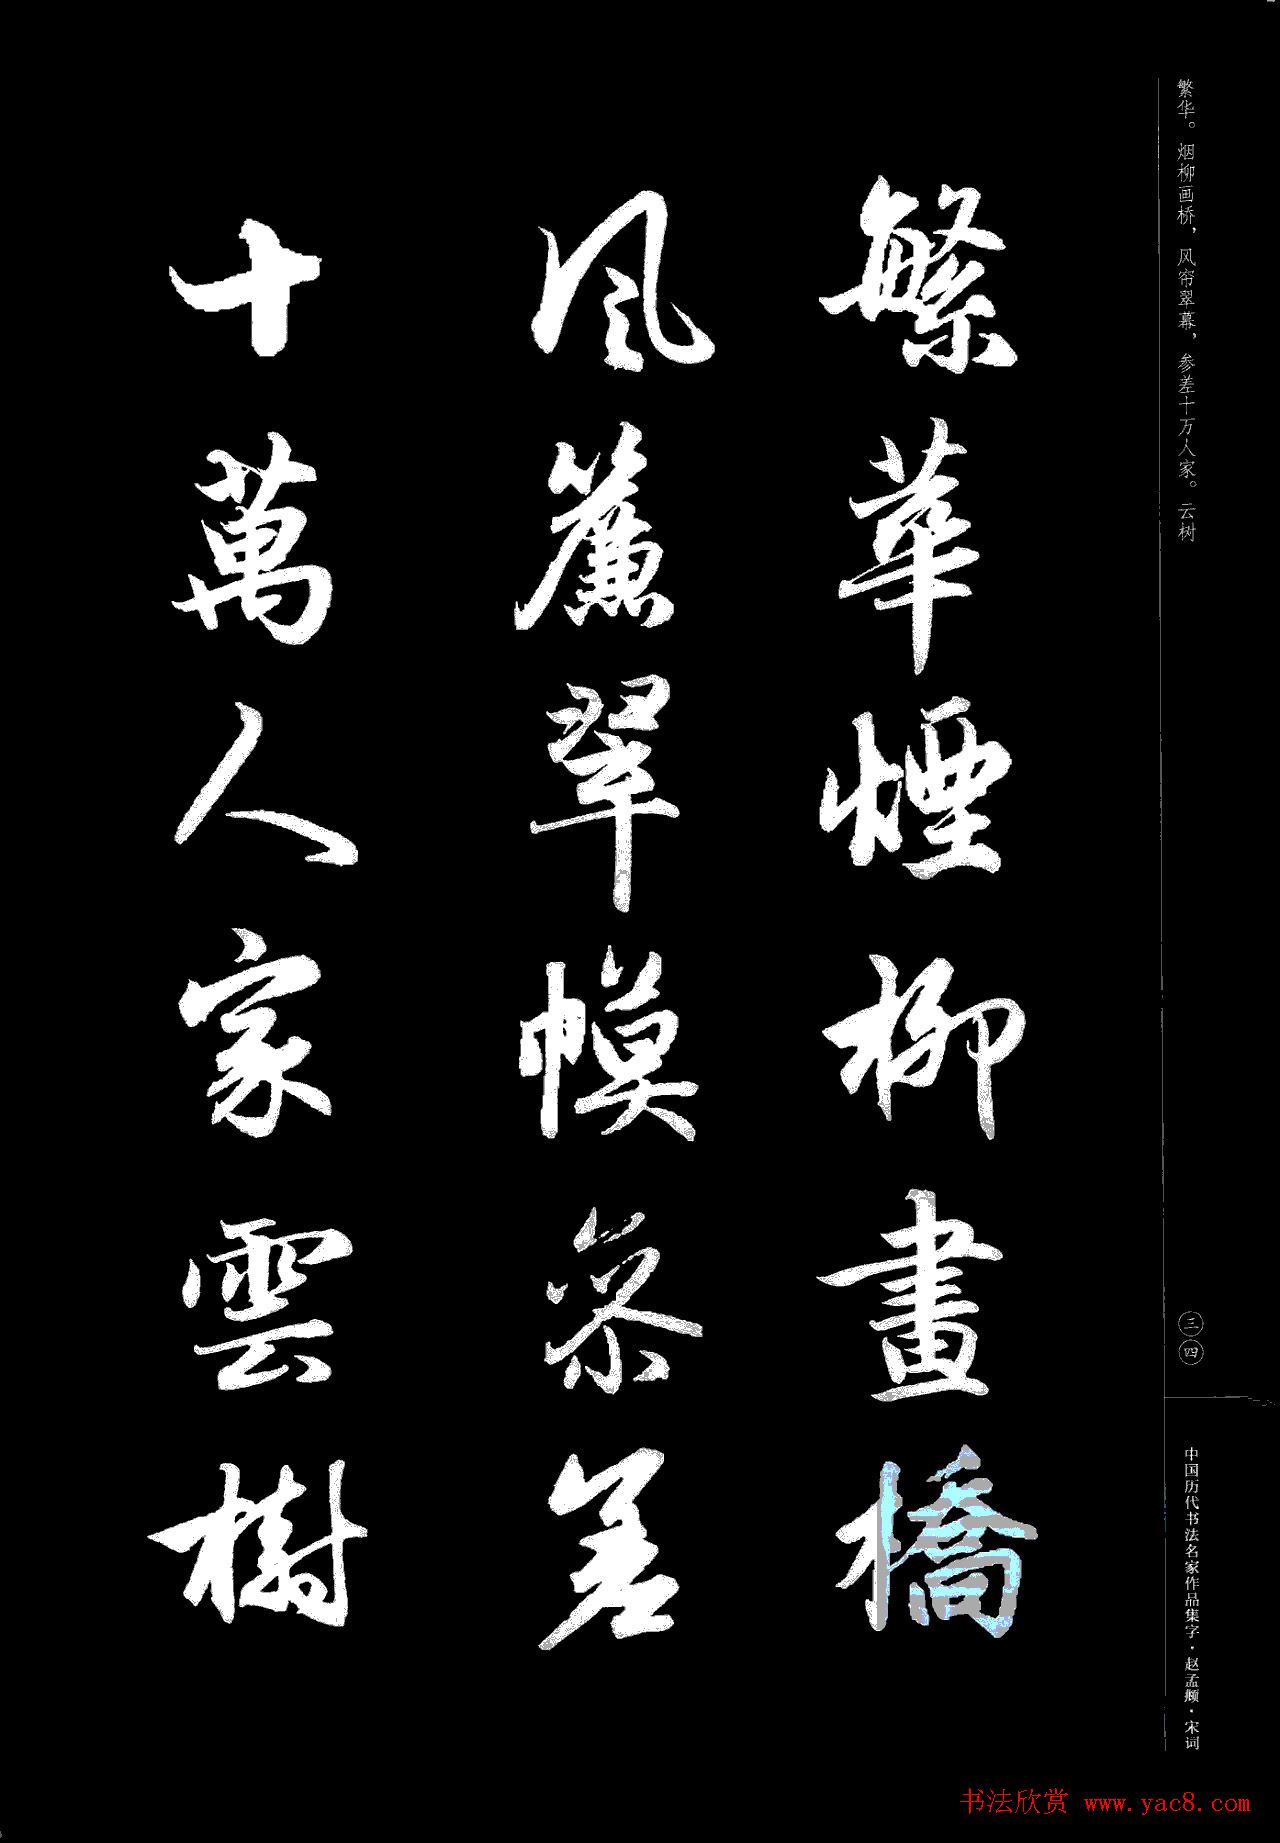 繁华。烟柳画桥，风帘翠幕，参差十万人家。云树
繁華煙柳畫橋
風簾翠幙叅差
十萬人家雲樹
三四
中国历代书法名家作品集字·赵孟頫·宋词
书法欣赏 www.yac8.com